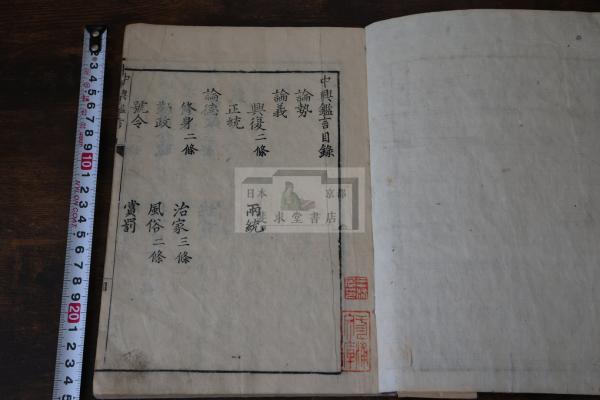 中興鑑言目錄
論勢
論義
興復二條
正統 兩統
論德
修身二條 治家三條
勤政 風俗二條
號令 賞罰
中興鑑言
日本 京都
求堂書店